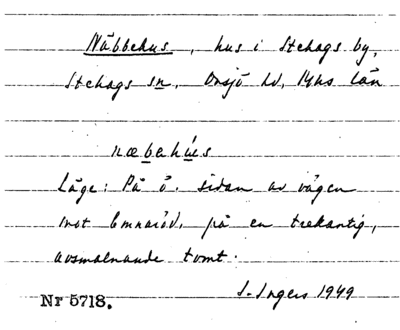 Näbbehus, hus i Stehags by,
Stehags sn. Onsjö hd, Mhs län
næbahús
Läge: På ö. sidan av vägen
mot Emnaröd, på en trekantig,
avsmalnande tomt.
I. Ingers 1949
Nr 5718.